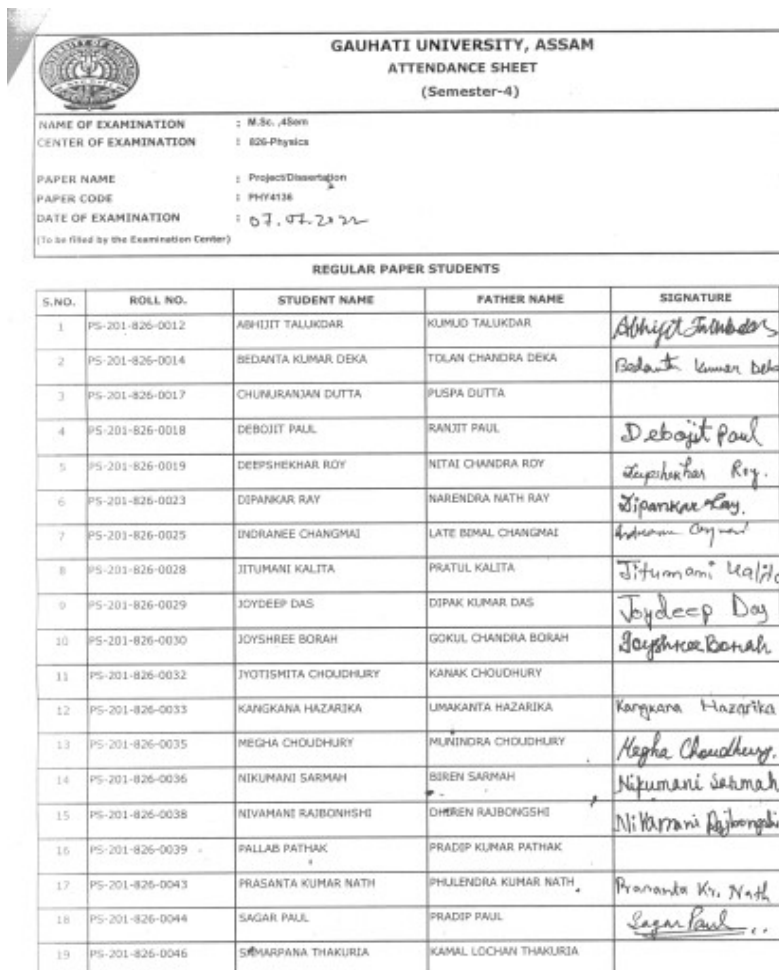 GAUHATI UNIVERSITY, ASSAM
ATTENDANCE SHEET
(Semester-4)
NAME OF EXAMINATION : M.Sc. ,4Sem
CENTER OF EXAMINATION : 826-Physics
PAPER NAME : Project/Dissertation
PAPER CODE : PHY4136
DATE OF EXAMINATION : 07.07.2022
(To be filled by the Examination Center)
REGULAR PAPER STUDENTS
S.NO. ROLL NO. STUDENT NAME FATHER NAME SIGNATURE
1 PS-201-826-0012 ABHIJIT TALUKDAR KUMUD TALUKDAR Abhijit Talukdar
2 PS-201-826-0014 BEDANTA KUMAR DEKA TOLAN CHANDRA DEKA Bedanta Kumar Deka
3 PS-201-826-0017 CHUNURANJAN DUTTA PUSPA DUTTA
4 PS-201-826-0018 DEBOJIT PAUL RANJIT PAUL Debojit Paul
5 PS-201-826-0019 DEEPSHEKHAR ROY NITAI CHANDRA ROY Deepshekhar Roy.
6 PS-201-826-0023 DIPANKAR RAY NARENDRA NATH RAY Dipankar Ray.
7 PS-201-826-0025 INDRANEE CHANGMAI LATE BIMAL CHANGMAI
8 PS-201-826-0028 JITUMANI KALITA PRATUL KALITA Jitumani Kalita
9 PS-201-826-0029 JOYDEEP DAS DIPAK KUMAR DAS Joydeep Das
10 PS-201-826-0030 JOYSHREE BORAH GOKUL CHANDRA BORAH Joyshree Borah
11 PS-201-826-0032 JYOTISMITA CHOUDHURY KANAK CHOUDHURY
12 PS-201-826-0033 KANGKANA HAZARIKA UMAKANTA HAZARIKA Kangkana Hazarika
13 PS-201-826-0035 MEGHA CHOUDHURY MUNINDRA CHOUDHURY Megha Choudhury.
14 PS-201-826-0036 NIKUMANI SARMAH BIREN SARMAH Nikumani Sarmah
15 PS-201-826-0038 NIVAMANI RAJBONHSHI DHIREN RAJBONGSHI Nivamani Rajbongshi
16 PS-201-826-0039 PALLAB PATHAK PRADIP KUMAR PATHAK
17 PS-201-826-0043 PRASANTA KUMAR NATH PHULENDRA KUMAR NATH Prasanta Kr. Nath
18 PS-201-826-0044 SAGAR PAUL PRADIP PAUL Sagar Paul
19 PS-201-826-0046 SAMARPANA THAKURIA KAMAL LOCHAN THAKURIA